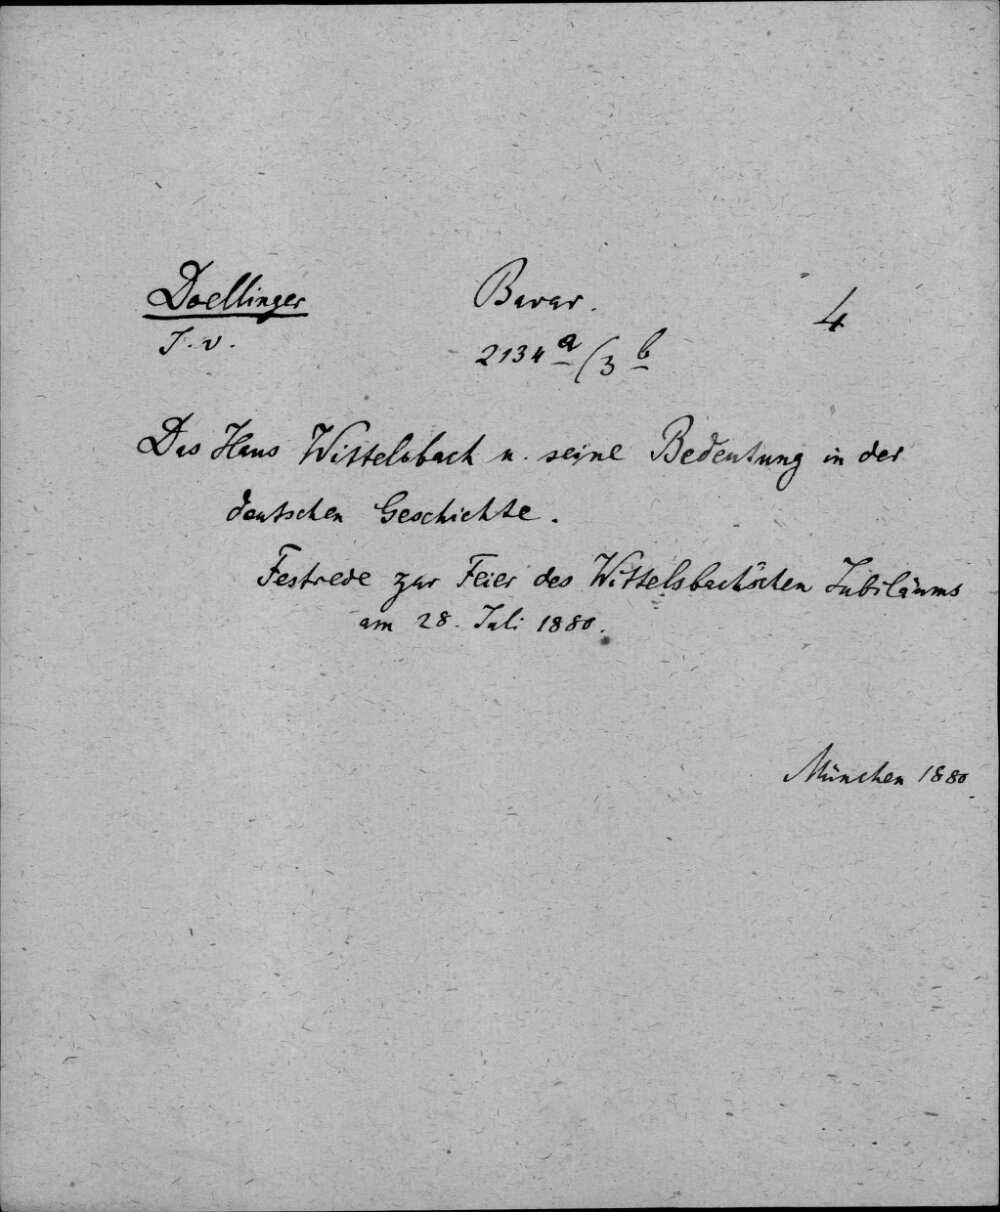 Doellinger Bavar. 4
J. v. 2134 a/3 b
Das Haus Wittelsbach u. seine Bedeutung in der
deutschen Geschichte.
Festrede zur Feier des Wittelsbach'schen Jubiläums
am 28. Juli 1880.
München 1880.